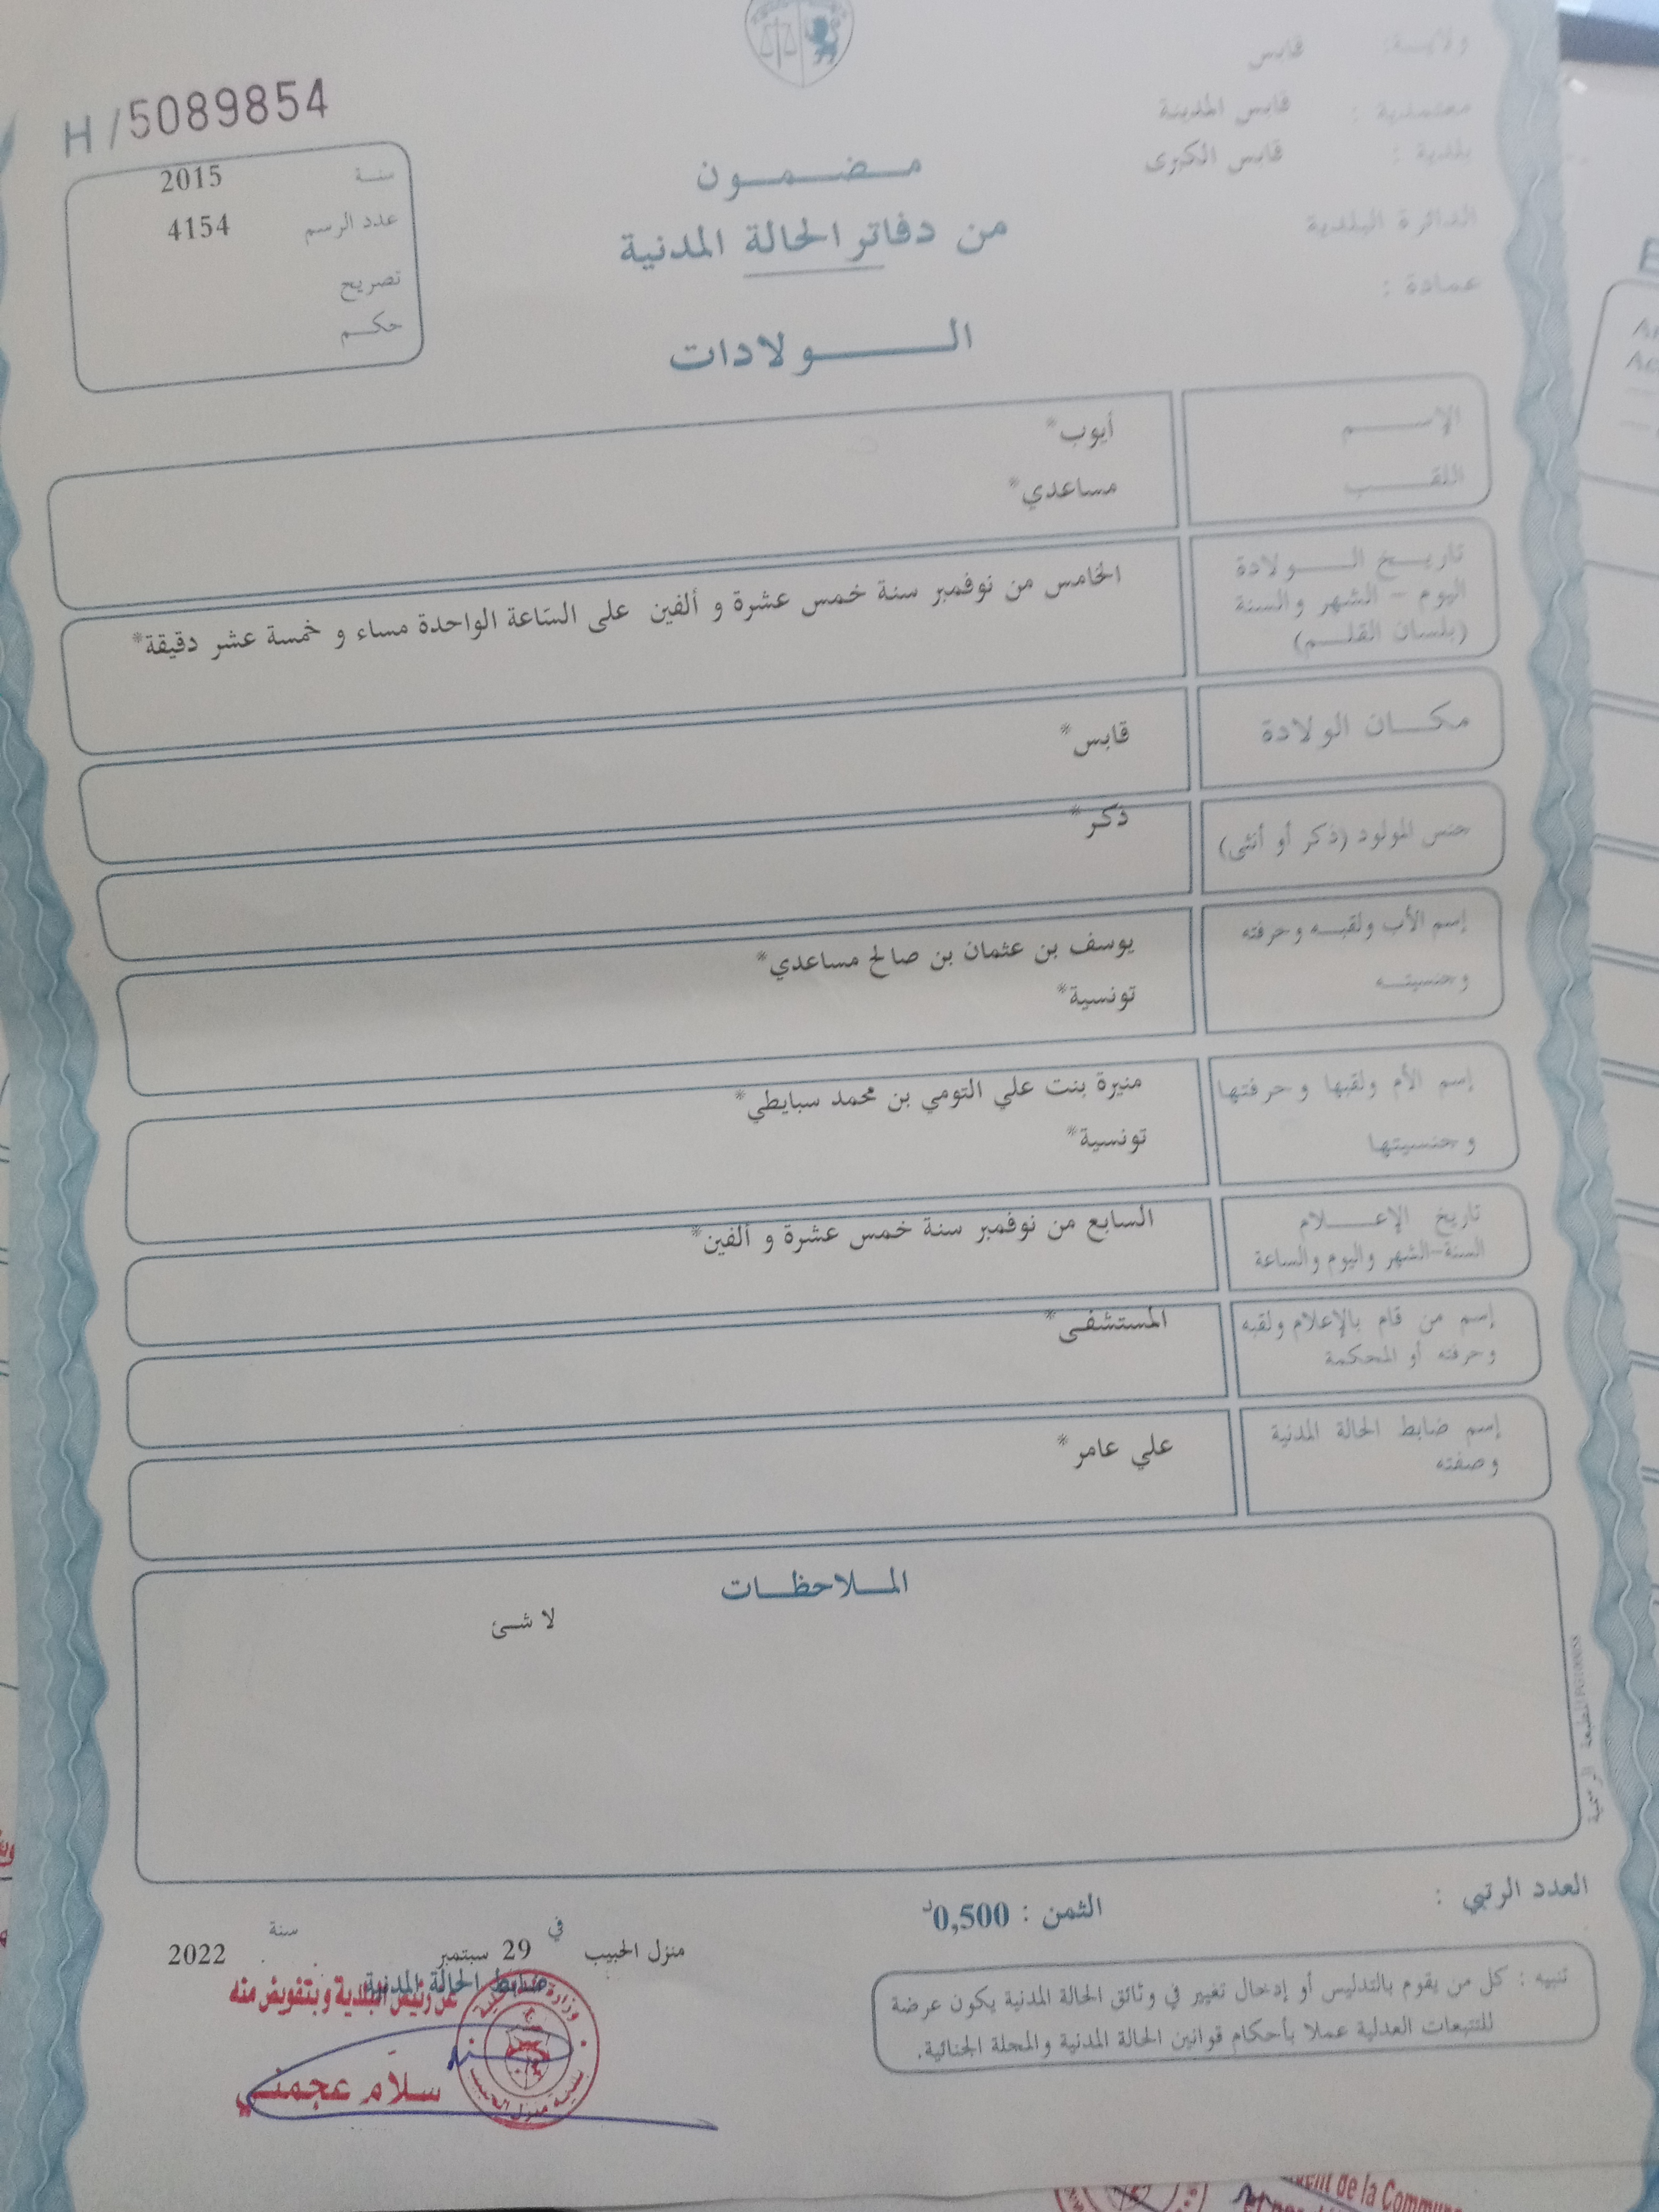 H/5089854
ولايــة: قابس
معتمدية : قابس المدينة
بلدية : قابس الكبرى
الدائرة البلدية
عمادة :
سنـة 2015
عدد الرسم 4154
تصريح
حكـم
مـضـمـون
من دفاتر الحالة المدنية
الـولادات
الإسـم أيوب*
اللقـب مساعدي*
تاريـخ الـولادة
اليوم - الشهر والسنة
(بلسان القلـم)
الخامس من نوفمبر سنة خمس عشرة و ألفين على الساعة الواحدة مساء و خمسة عشر دقيقة*
مكـان الولادة قابس*
جنس المولود (ذكر أو أنثى) ذكر*
إسم الأب ولقبـه وحرفته يوسف بن عثمان بن صالح مساعدي*
وجنسيتـه تونسية*
إسم الأم ولقبها وحرفتها منيرة بنت علي التومي بن محمد سبايطي*
وجنسيتها تونسية*
تاريخ الإعـلام السابع من نوفمبر سنة خمس عشرة و ألفين*
السنة-الشهر واليوم والساعة
إسم من قام بالإعلام ولقبه المستشفى*
وحرفته أو المحكمة
إسم ضابط الحالة المدنية علي عامر*
وصفته
المـلاحظـات
لا شئ
المطبعة الرسمية
العدد الرتبي :
الثمن : 0,500د
منزل الحبيب في 29 سبتمبر سنة 2022
ضابط الحالة المدنية
عن رئيس البلدية وبتفويض منه
سلام عجمني
تنبيه : كل من يقوم بالتدليس أو إدخال تغيير في وثائق الحالة المدنية يكون عرضة
للتتبعات العدلية عملا بأحكام قوانين الحالة المدنية والمجلة الجنائية.
de la Commune